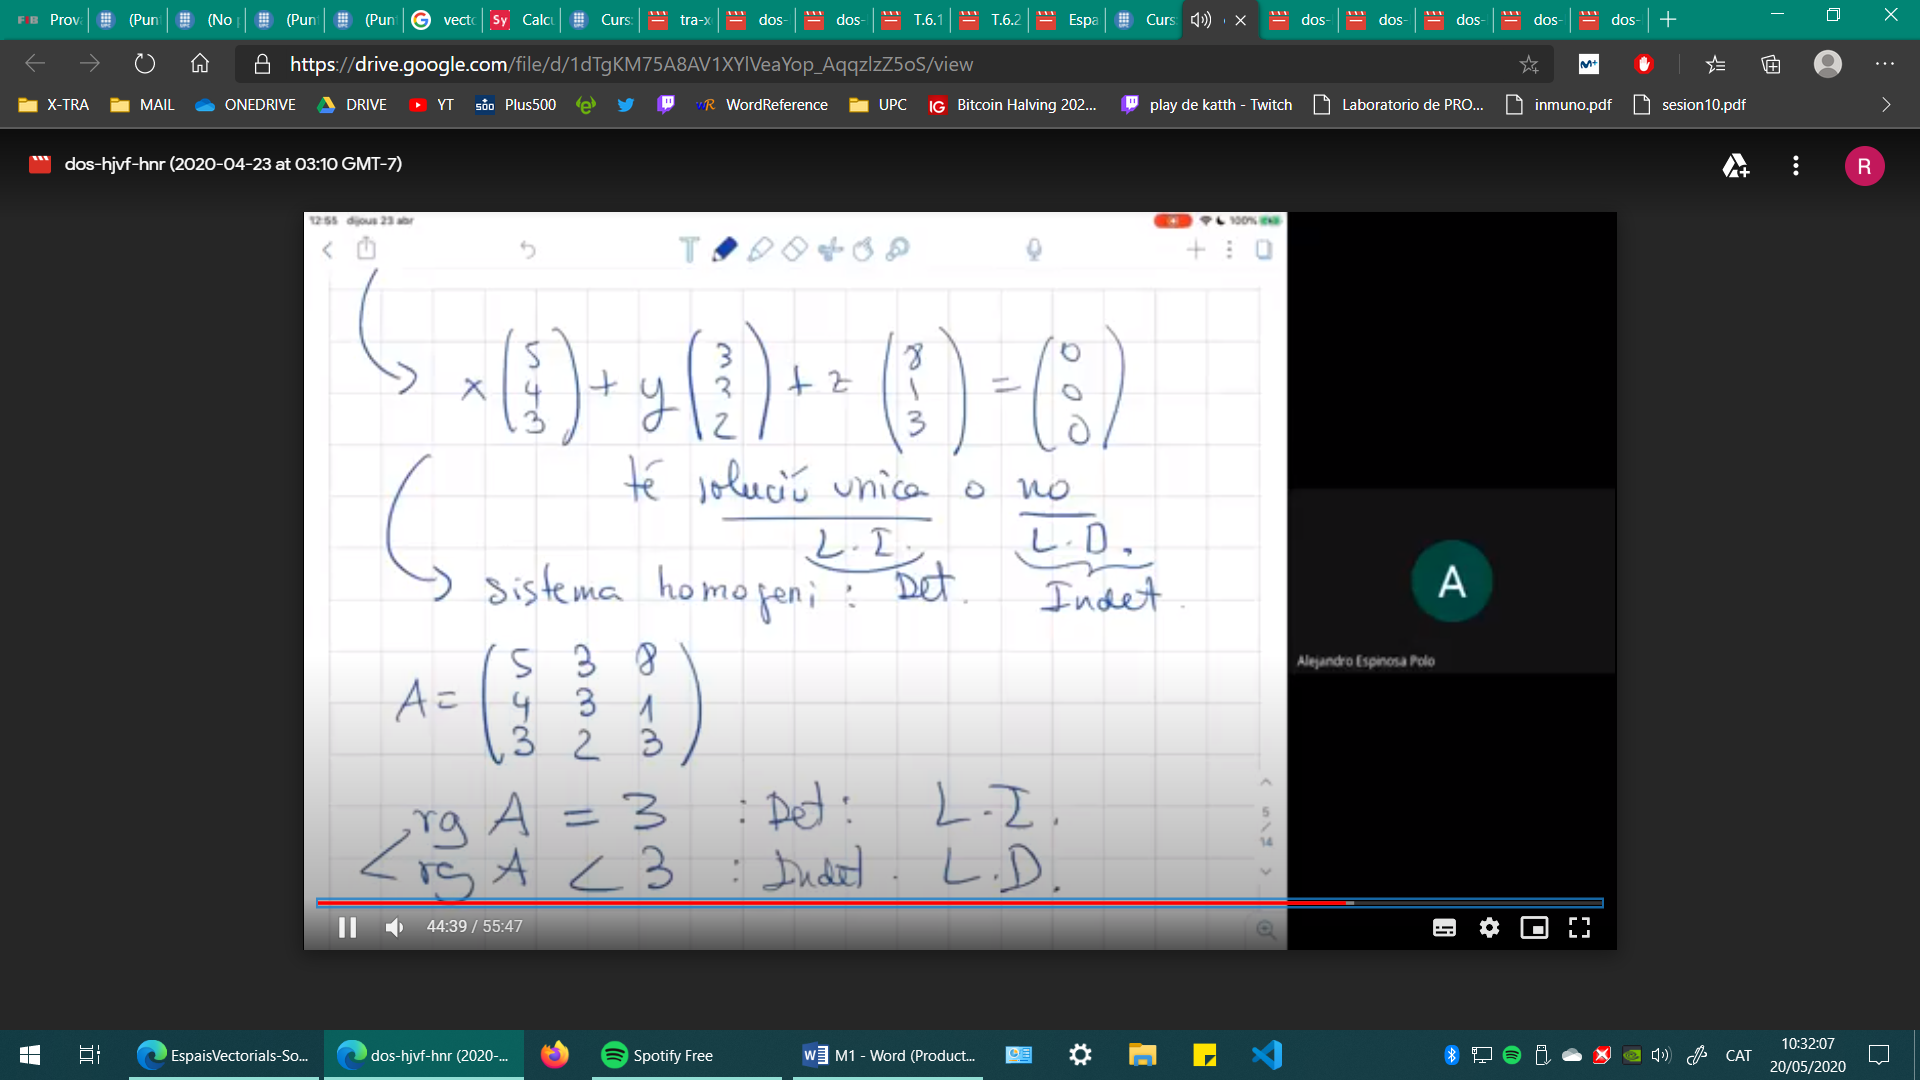 Prov
(Pun
(No
(Pun
(Pun
vect
Calcu
Curs
tra-x
dos-
dos-
T.6.1
T.6.2
Espa
Curs
dos-
dos-
dos-
dos-
dos-
https://drive.google.com/file/d/1dTgKM75A8AV1XYlVeaYop_AqqzlzZ5oS/view
X-TRA MAIL ONEDRIVE DRIVE YT Plus500 WordReference UPC Bitcoin Halving 202... play de katth - Twitch Laboratorio de PRO... inmuno.pdf sesion10.pdf
dos-hjvf-hnr (2020-04-23 at 03:10 GMT-7)
R
12:55 dijous 23 abr 100%
x (5 4 3) + y (3 3 2) + z (8 1 3) = (0 0 0)
té solució unica o no
L.I. L.D.
sistema homogeni : Det. Indet.
A = (5 3 8
4 3 1
3 2 3)
rg A = 3 : Det : L.I.
rg A < 3 : Indet. L.D.
5 / 14
A
Alejandro Espinosa Polo
44:39 / 55:47
EspaisVectorials-So...
dos-hjvf-hnr (2020-...
Spotify Free
M1 - Word (Product...
CAT
10:32:07
20/05/2020